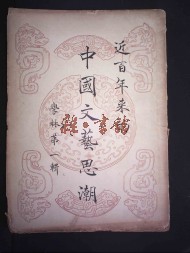 近百年來
中國文藝思潮
學林第一輯